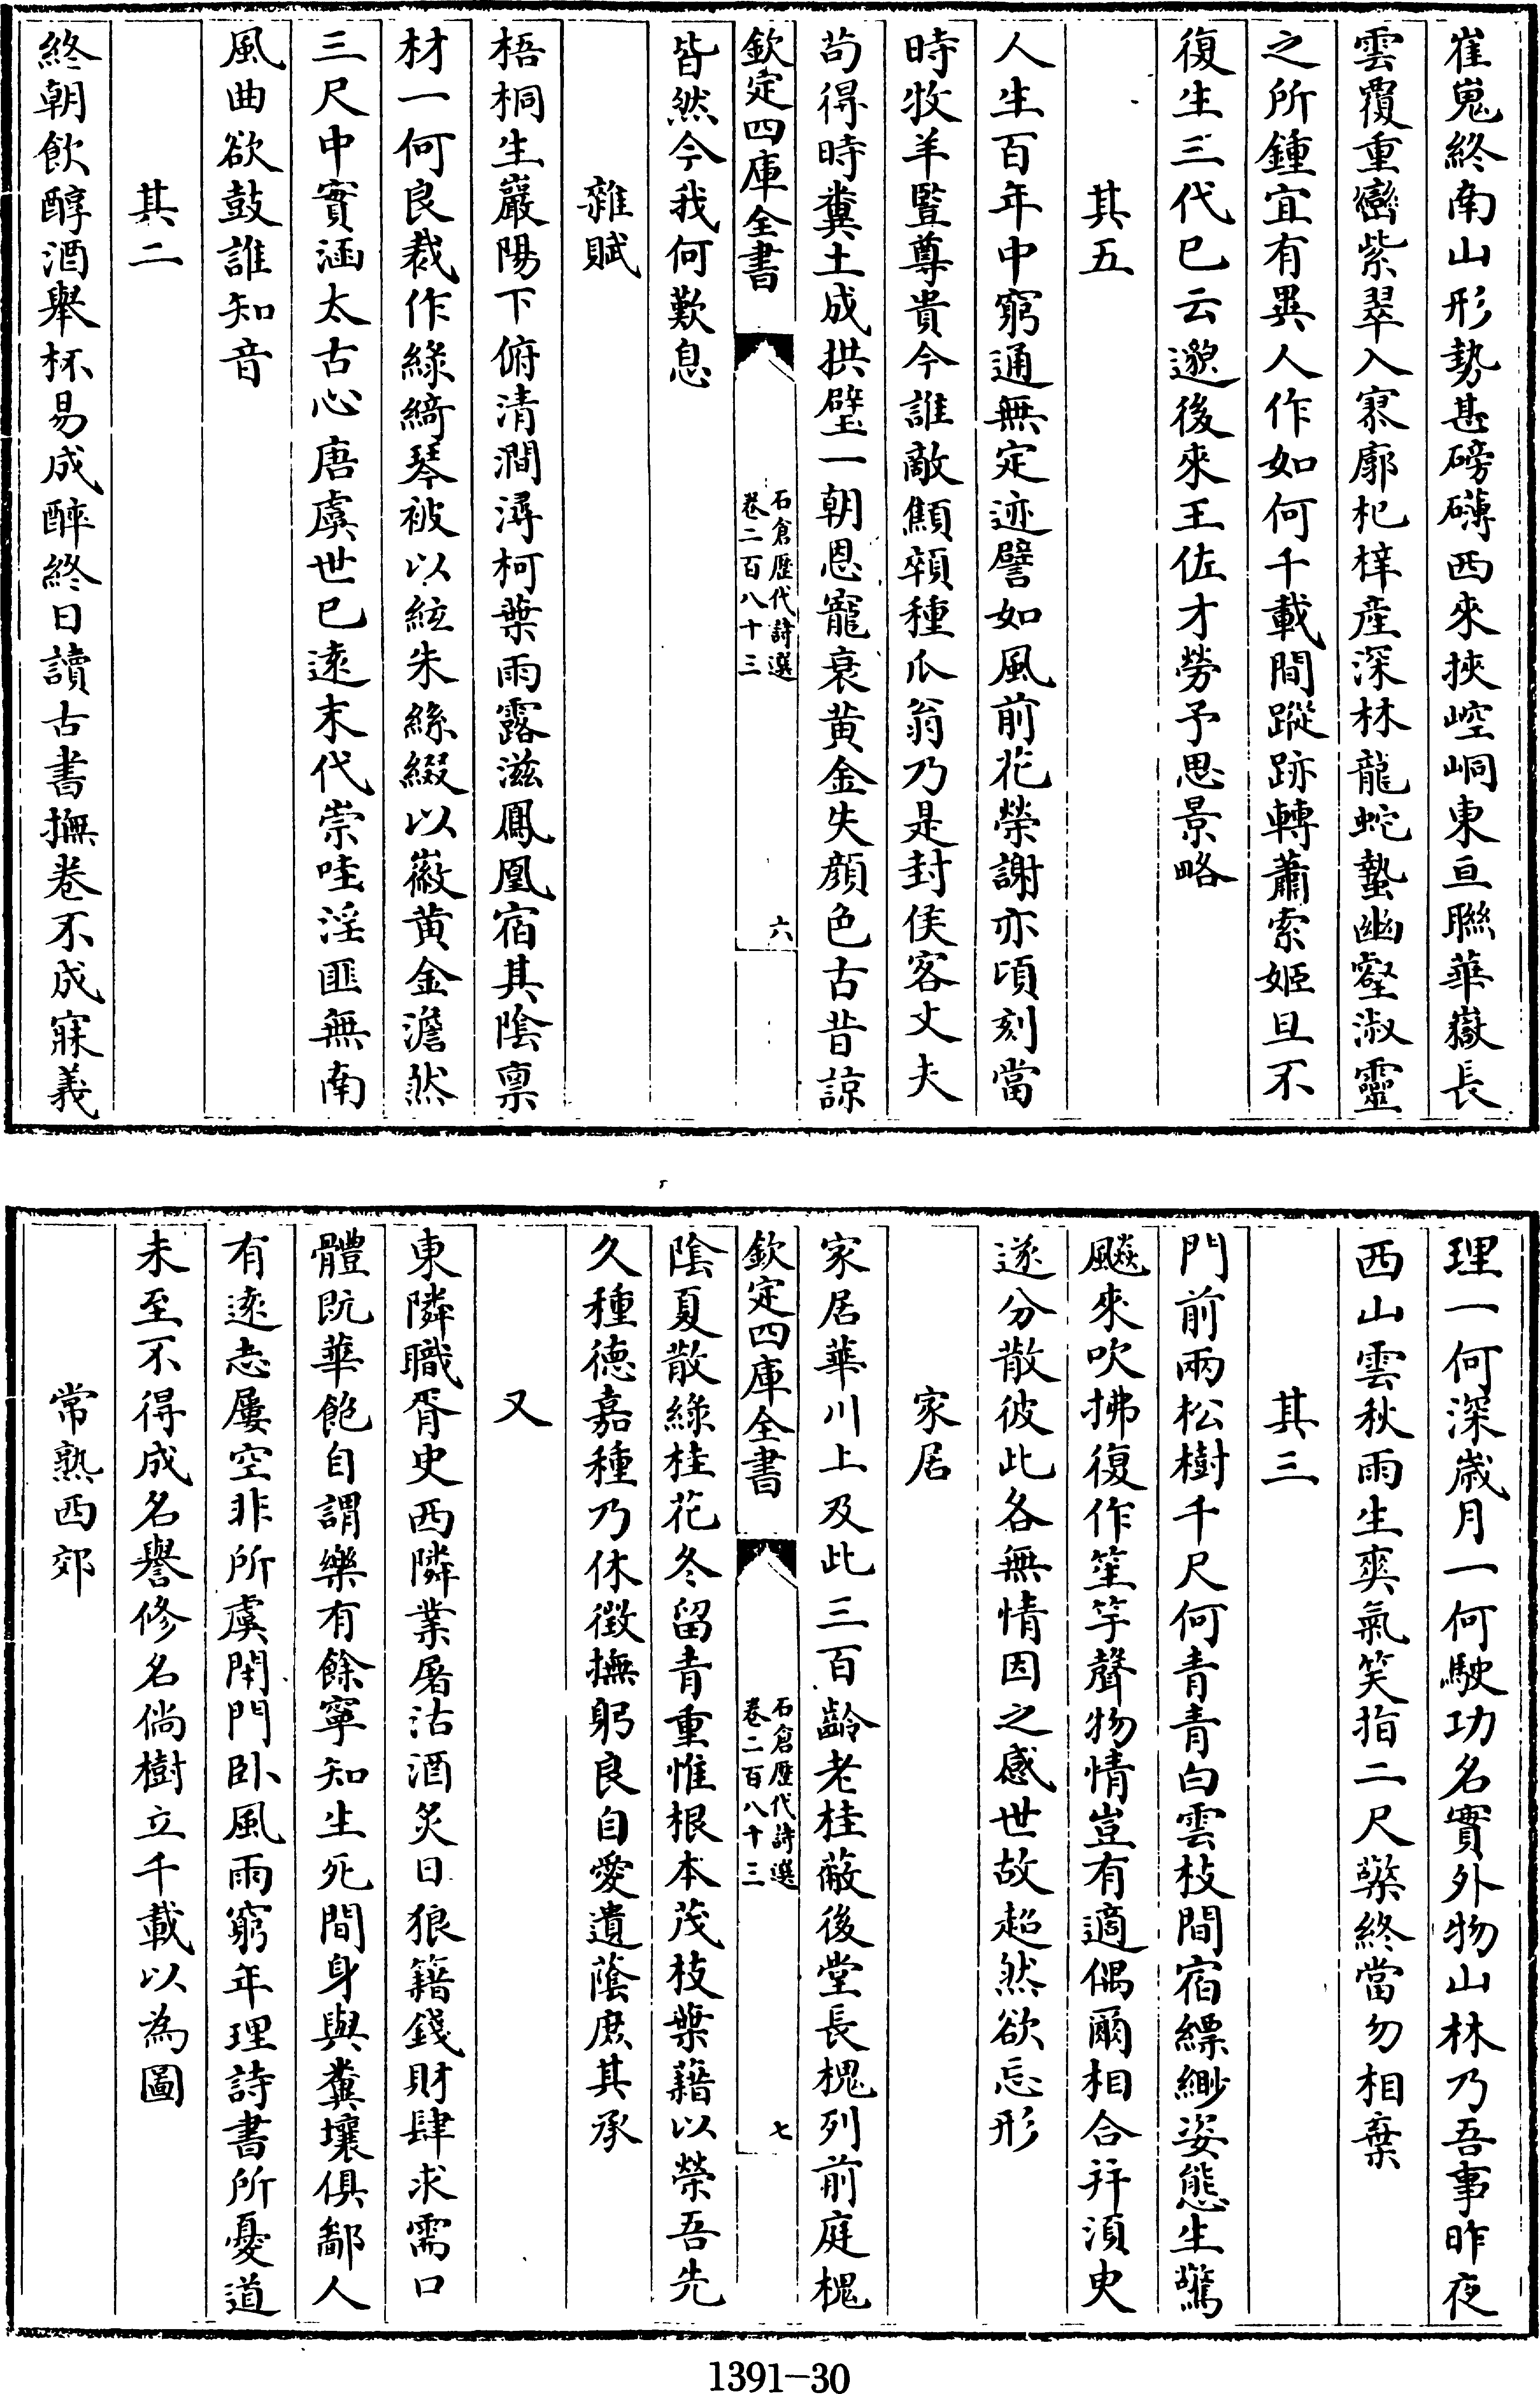 崔嵬終南山形勢甚磅礴西來挾崆峒東亘聯華嶽長
雲覆重巒紫翠入寥廓杞梓産深林龍蛇蟄幽壑淑靈
之所鍾宜有異人作如何千載間蹤跡轉蕭索姬旦不
復生三代已云邈後來王佐才勞予思景略
其五
人生百年中窮通無定迹譬如風前花榮謝亦頃刻當
時牧羊豎尊貴今誰敵顦顇種瓜翁乃是封侯客丈夫
苟得時糞土成拱璧一朝恩寵衰黄金失顔色古昔諒
欽定四庫全書
石倉歷代詩選
卷二百八十三
六
皆然今我何歎息
雜賦
梧桐生巖陽下俯清澗潯柯葉雨露滋鳳凰宿其陰禀
材一何良裁作綠綺琴被以絃朱絲綴以徽黄金澹然
三尺中實涵太古心唐虞世已逺末代崇哇淫匪無南
風曲欲鼓誰知音
其二
終朝飲醇酒舉杯易成醉終日讀古書撫卷不成寐義
理一何深歲月一何駛功名實外物山林乃吾事昨夜
西山雲秋雨生爽氣笑指二尺檠終當勿相棄
其三
門前兩松樹千尺何青青白雲枝間宿縹緲姿態生驚
飈來吹拂復作笙竽聲物情豈有適偶爾相合并湏臾
遂分散彼此各無情因之感世故超然欲忘形
家居
家居華川上及此三百齡老桂蔽後堂長槐列前庭槐
欽定四庫全書
石倉歷代詩選
卷二百八十三
七
陰夏散綠桂花冬留青重惟根本茂枝葉藉以榮吾先
久種德嘉種乃休徴撫躬良自愛遺蔭庶其承
又
東隣職胥史西隣業屠沽酒炙日狼籍錢財肆求需口
體旣華飽自謂樂有餘寧知生死間身與糞壤俱鄙人
有逺志屢空非所虞閉門卧風雨窮年理詩書所憂道
未至不得成名譽修名倘樹立千載以為圖
常熟西郊
1391-30